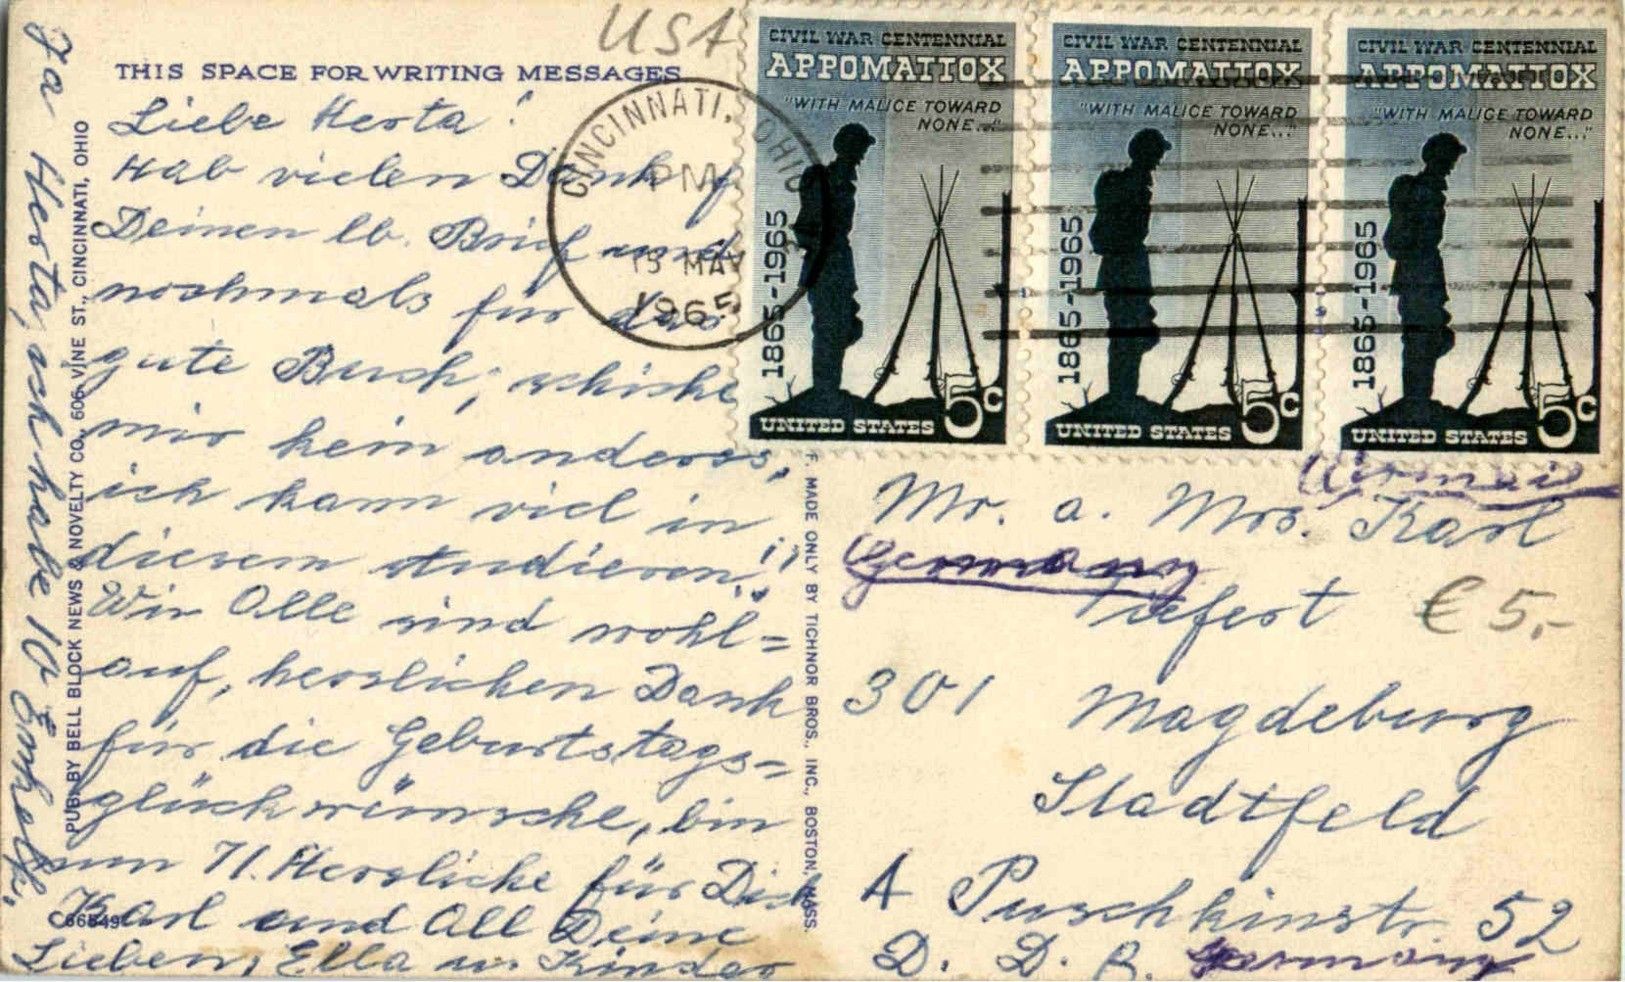 USA
THIS SPACE FOR WRITING MESSAGES
Liebe Herta!
Hab vielen Dank f
Deinen lb. Brief und
nochmals für das
gute Buch, schicke
mir kein anderes,
ich kann viel in
diesem studieren!!
Wir Alle sind wohl=
auf, herzlichen Dank
für die Geburtstags=
glückwünsche, bin
nun 71. Herzliche für Dich
Karl und All Deine
Lieben, Ella u. Kinder
Ja Herta, ich habe 10 Enkelk.
PUB. BY BELL BLOCK NEWS & NOVELTY CO., 606 VINE ST., CINCINNATI, OHIO
C66549
F. MADE ONLY BY TICHNOR BROS., INC., BOSTON, MASS.
CINCINNATI, OHIO
PM
13 MAY
1965
CIVIL WAR CENTENNIAL
APPOMATTOX
"WITH MALICE TOWARD
NONE..."
1865-1965
5c
UNITED STATES
CIVIL WAR CENTENNIAL
APPOMATTOX
"WITH MALICE TOWARD
NONE..."
1865-1965
5c
UNITED STATES
CIVIL WAR CENTENNIAL
APPOMATTOX
"WITH MALICE TOWARD
NONE..."
1865-1965
5c
UNITED STATES
Airmail
Mr. a. Mrs. Karl
Germany
Tiefert
€ 5,-
301 Magdeburg
Stadtfeld
A Puschkinstr. 52
D. D. R. Germany